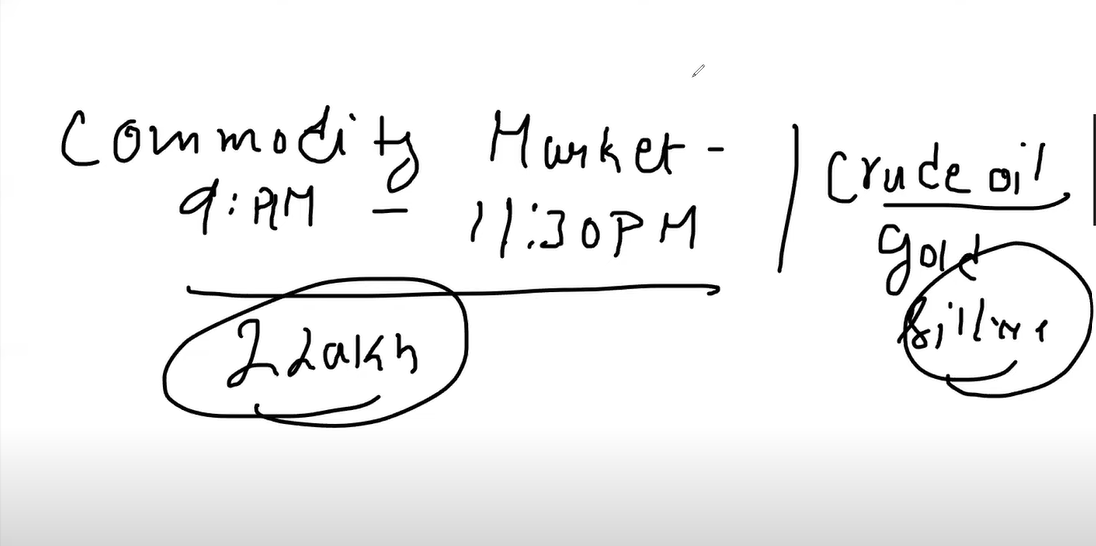 Commodity Market -
9:AM - 11:30PM
2 Lakh
Crude oil
gold